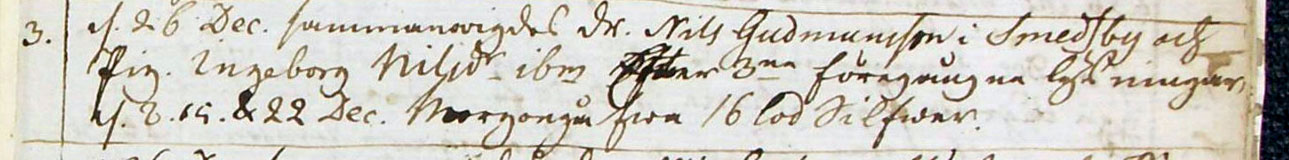 3. d. 26 Dec. sammanwigdes Dr. Nils Gudmundson i Smedsby och
Pig. Ingeborg Nilsdr ibm efter 3ne föregångne lysningar,
d. 8. 15. & 22 Dec. Morgongåfwa 16 lod Silfwer.